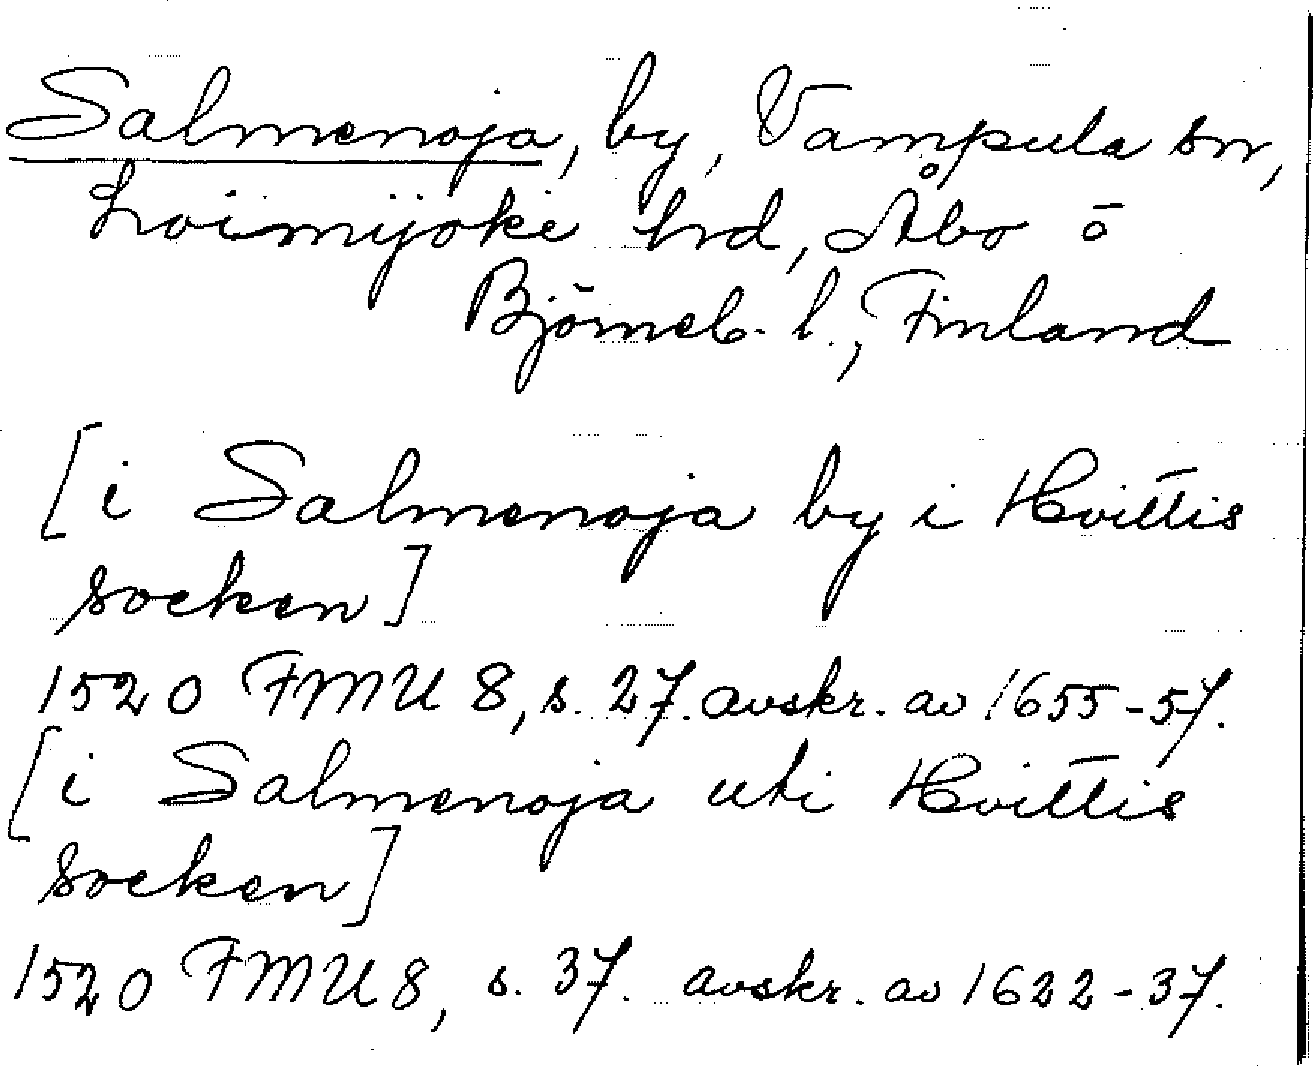 Salmenoja, by, Vampula sn,
Loimijoki hrd, Åbo o
Björneb. l., Finland
[i Salmenoja by i Hvittis
socken]
1520 FMU 8, s. 27. avskr. av 1655-57.
[i Salmenoja uti Hvittis
socken]
1520 FMU 8, s. 37. avskr. av 1622-37.